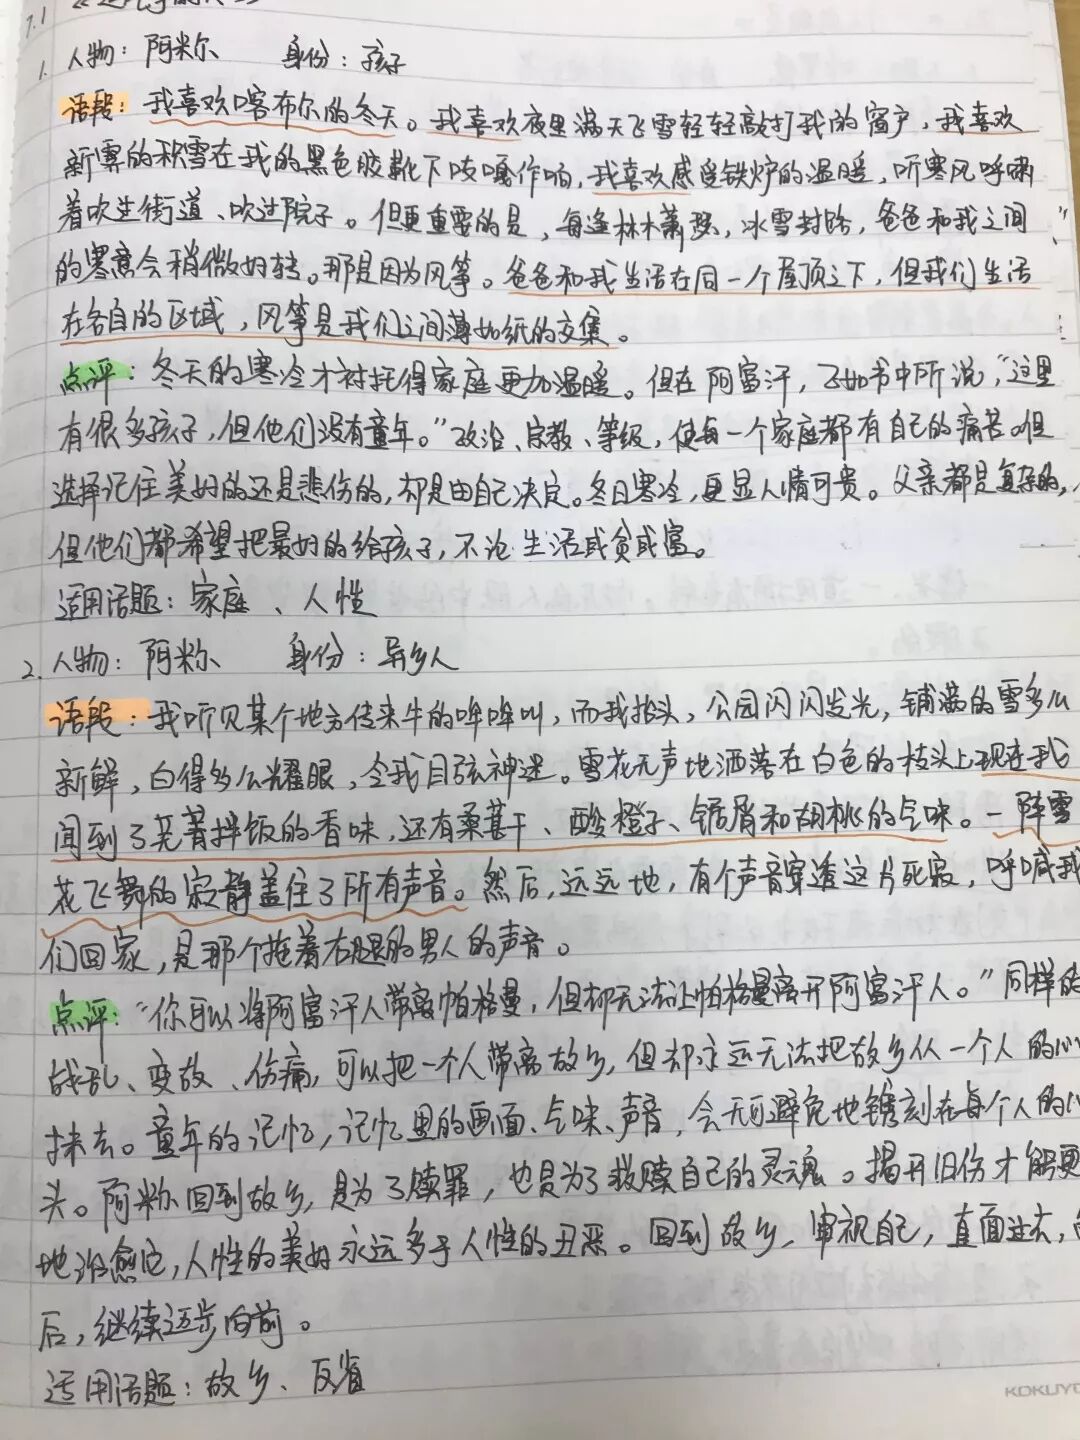 7.1
1. 人物：阿米尔 身份：孩子
语段：我喜欢喀布尔的冬天。我喜欢夜里满天飞雪轻轻敲打我的窗户，我喜欢
新霁的积雪在我的黑色胶靴下吱嘎作响，我喜欢感受铁炉的温暖，听寒风呼啸
着吹过街道、吹过院子。但更重要的是，每逢林木萧瑟，冰雪封路，爸爸和我之间
的寒意会稍微好转。那是因为风筝。爸爸和我生活在同一个屋顶之下，但我们生活
在各自的区域，风筝是我们之间薄如纸的交集。
点评：冬天的寒冷才衬托得家庭更加温暖。但在阿富汗，正如书中所说，“这里
有很多孩子，但他们没有童年。”政治、宗教、等级，使每一个家庭都有自己的痛苦。但
选择记住美好的还是悲伤的，却是由自己决定。冬日寒冷，更显人情可贵。父亲都是复杂的，
但他们都希望把最好的给孩子，不论生活或贫或富。
适用话题：家庭、人性
2. 人物：阿米尔 身份：异乡人
语段：我听见某个地方传来牛的哞哞叫，而我抬头，公园闪闪发光，铺满的雪多么
新鲜，白得多么耀眼，令我目眩神迷。雪花无声地洒落在白色的枝头上，现在我
闻到了芜菁拌饭的香味，还有桑葚干、酸橙子、锯屑和胡桃的气味。一阵雪
花飞舞的寂静盖住了所有声音。然后，远远地，有个声音穿透这片死寂，呼喊我
们回家，是那个拖着右腿的男人的声音。
点评：“你可以将阿富汗人带离帕格曼，但却无法让帕格曼离开阿富汗人。”同样的
战乱、变故、伤痛，可以把一个人带离故乡，但却永远无法把故乡从一个人的心
抹去。童年的记忆，记忆里的画面、气味、声音，会无可避免地镌刻在每个人的心
头。阿米尔回到故乡，是为了赎罪，也是为了救赎自己的灵魂。揭开旧伤才能更
地治愈它，人性的美好永远多于人性的丑恶。回到故乡，审视自己，直面过去，
后，继续迈步向前。
适用话题：故乡、反省
KOKUYO